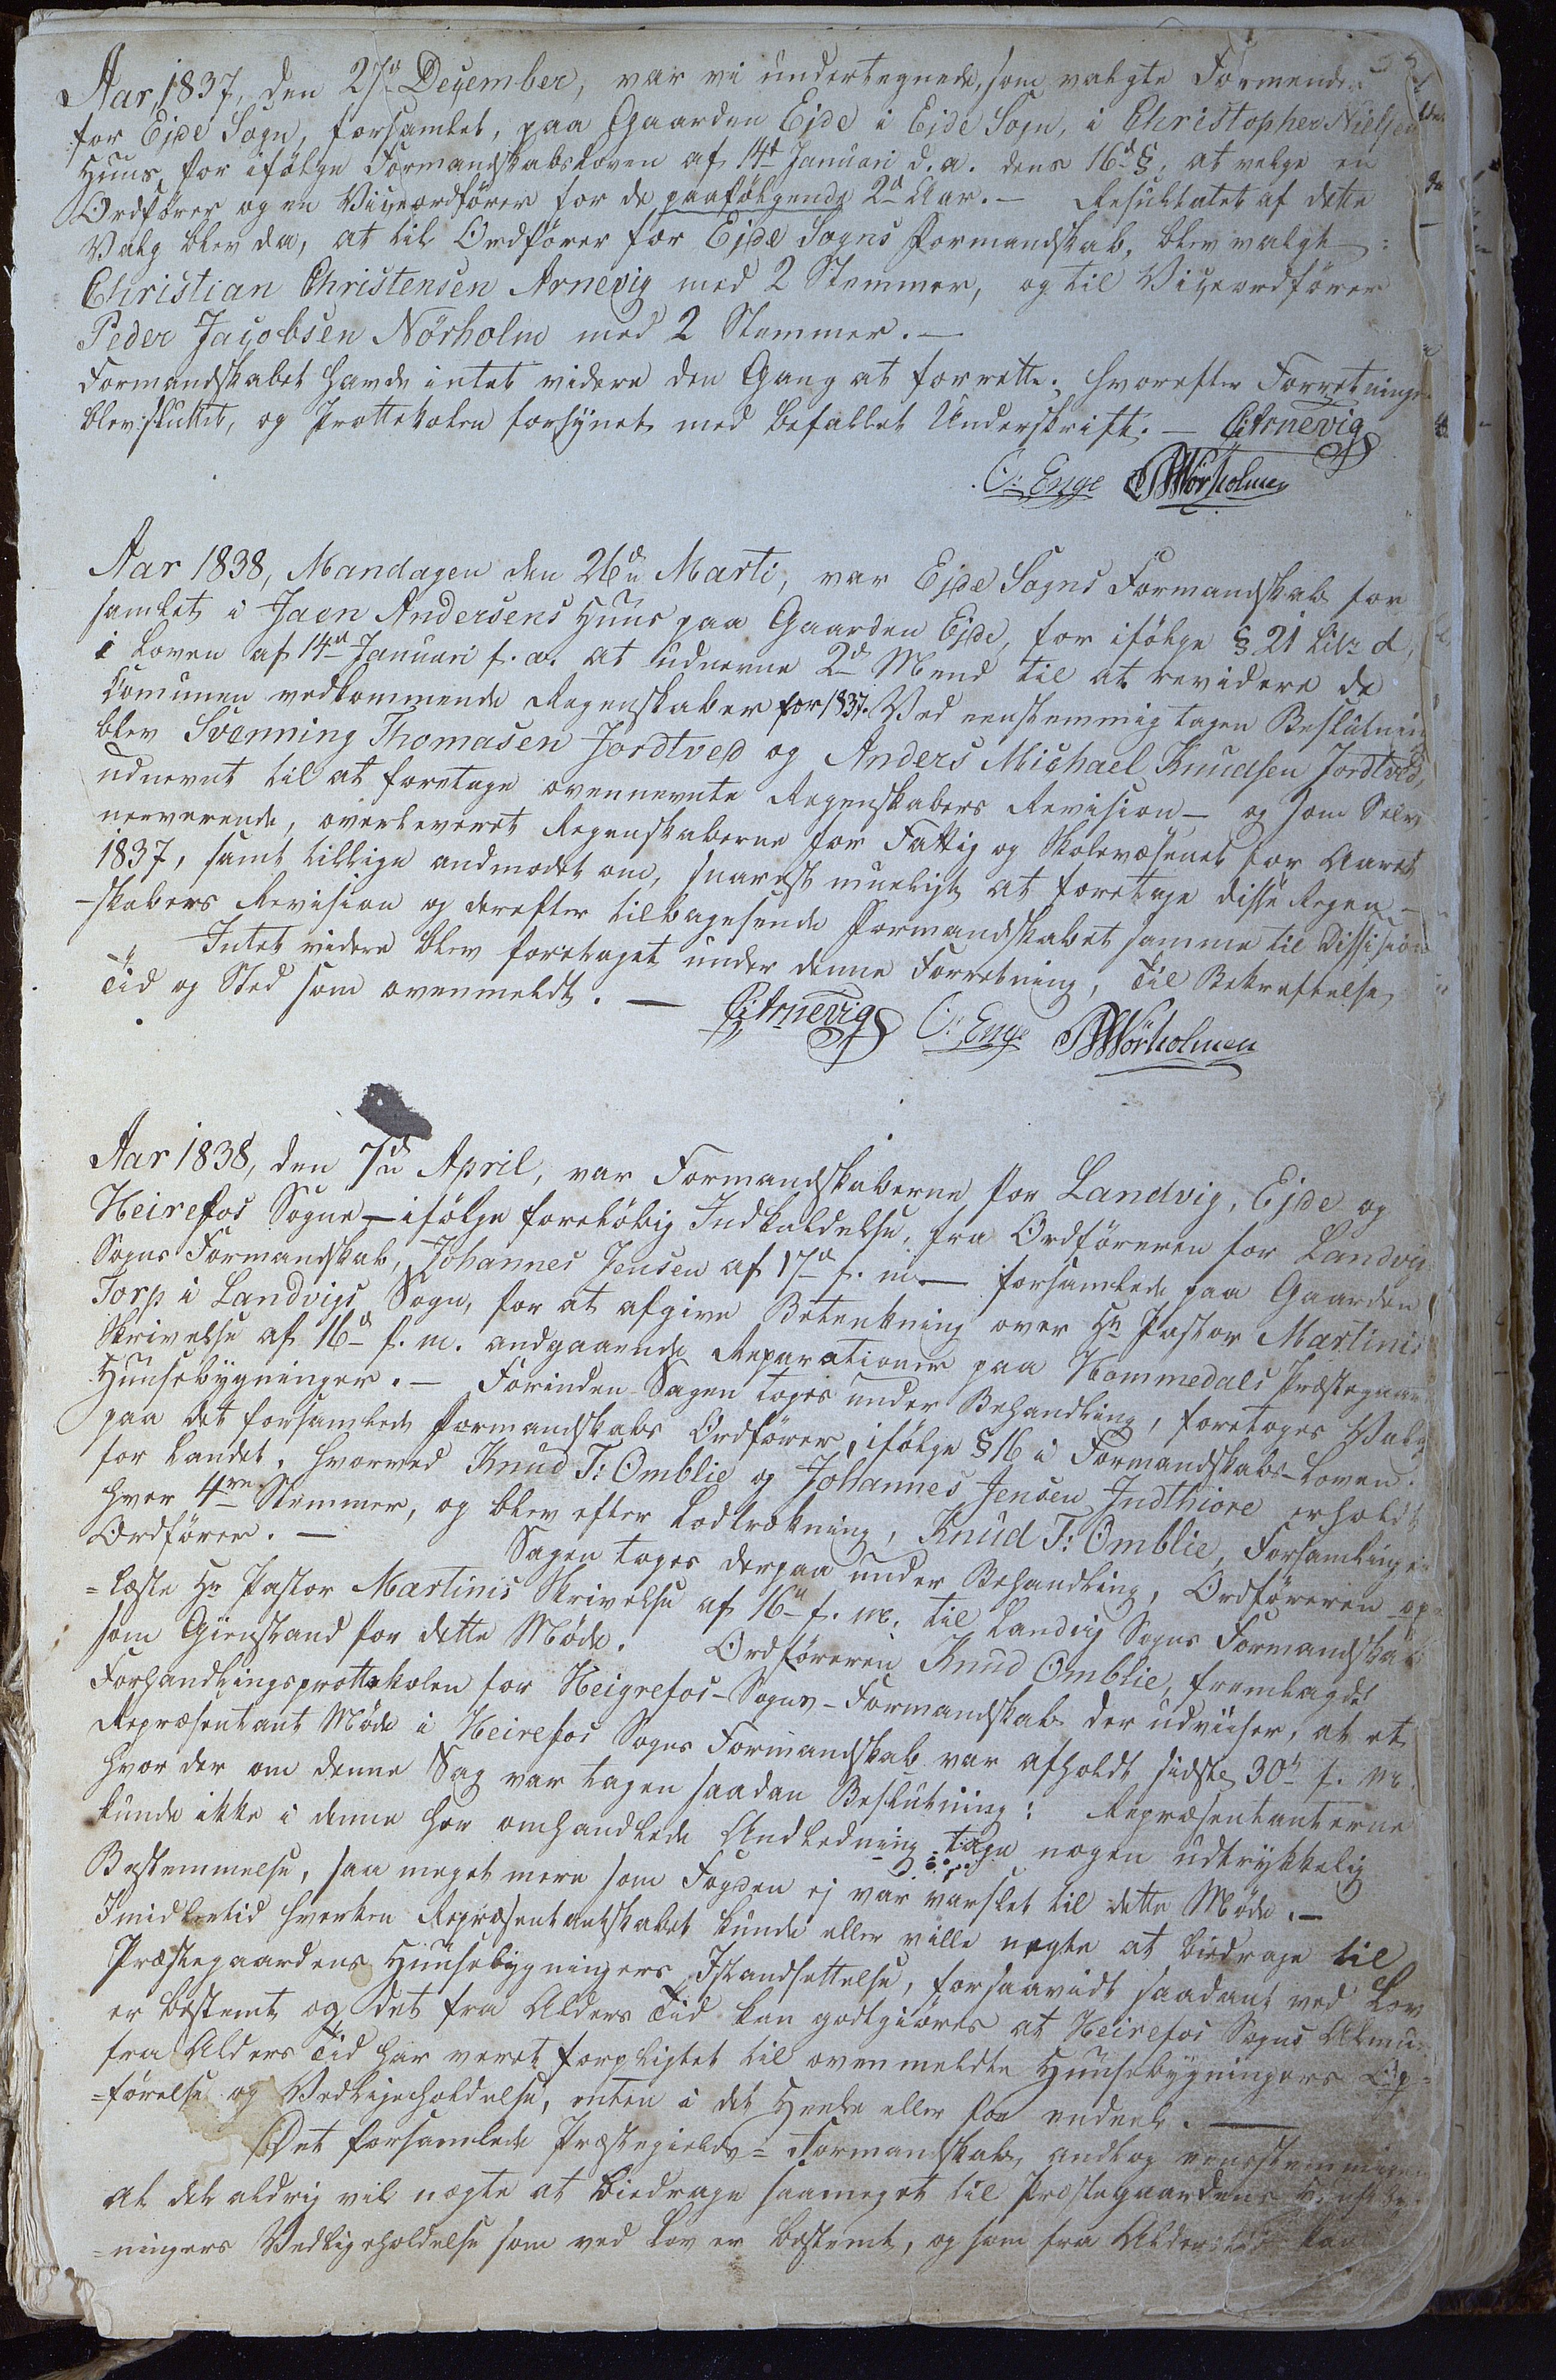 Aar 1837, den 27de December, var vi undertegnede, som valgte Formænder
for Ejde Sogn, forsamlet, paa Gaarden Ejde i Ejde Sogn, i Christopher Nielsen
Huus, for ifölge Formandskabsloven af 14de Januari d. a. dens 16de §, at velge en
Ordförer og en Viceordförer for de paafölgende 2de Aar. — Resultatet af dette
Valg blev da, at til Ordförer for Ejde Sogns Formandskab, blev valgt:
Christian Christensen Arnevig med 2 Stemmer, og til Viceordförer
Peder Jacobsen Nörholm med 2 Stemmer. —
Formandskabet havde intet videre den Gang at forrette; hvorefter Forretningen
blev sluttet, og Prottekolen forsynet med befallet Underskrift. — C: Arnevig
O: Enge PJNörholmen
Aar 1838, Mandagen den 26de Marti, var Ejde Sogns Formandskab for
samlet i Jaen Andersens Huus paa Gaarden Ejde, for ifölge § 21 Litr d,
i Loven af 14de Januari f. a. at udnevne 2de Mend til at revidere de
Comunen vedkommende Regenskaber for 1837. Ved eenstemmig tagen Beslutning
blev Svenning Thomasen Jordtved og Anders Michael Knudsen Jordtved,
udnevnt til at foretage ovennevnte Regenskabers Revision — og som Selv
nerverende, overleveret Regenskaberne for Fattig og Skolevæsenet for Aaret
1837, samt tillige andmodet om, snarest mueligt at foretage disse Regen-
-skabers Revision og derefter tilbagesende Formandskabet samme til Dessision
Intet videre blev foretaget under denne Forretning, Til Bekreftelse
Tid og Sted som ovenmeldt. — C: Arnevig O: Enge PJNörholmen
Aar 1838, den 7de April, var Formandskaberne for Landvig, Ejde og
Heirefos Sogne — ifölge forelöbig Indkaldelse, fra Ordföreren for Landvig
Sogns Formandskab, Johannes Jensen af 17de f. m. — forsamlede paa Gaarden
Torp i Landvigs Sogn, for at afgive Betenkning over Hr Pastor Martinis
Skrivelse af 16de f. m. andgaaende Reparationer paa Hommedals Præstegaard
Huusebygninger. — Forinden Sagen toges under Behandling, foretoges Valg
paa det forsamlede Formandskabs Ordförer, ifölge § 16 i Formandskabs-Loven
for Landet, hvorved Knud T: Omblie og Johannes Jensen Indthiore erholdt
hver 4re Stemmer, og blev efter Lodtrekning, Knud T: Omblie, Forsamlingens
Ordförer. — Sagen toges derpaa under Behandling, Ordföreren op-
=læste Hr Pastor Martinis Skrivelse af 16de f. m. til Landvig Sogns Formandskab
som Gienstand for dette Möde. Ordföreren Knud Omblie, fremlagde
Forhandlingsprottekolen for Heigrefos-Sogns-Formandskab der udviiser, at et
Repræsentant Möde i Heirefos Sogns Formandskab var afholdt sidste 30te f. m.
hvor der om denne Sag var tagen saadan Beslutning: Repræsentanterne
kunde ikke i denne her omhandlede Andledning tage nogen udtrykkelig
Bestemmelse, saa meget mere som Fogden ej var varslet til dette Möde. —
Imidlertid hverken Repræsentantskabet kunde eller ville negte at biedrage til
Præstegaardens Huusebygningers Istandsettelse, forsaavidt saadant ved Lov
er bestemt og det fra Alders Tid kan godtgiöres at Heirefos Sogns Almue
fra Alders Tid har veret forpligtet til ovenmeldte Huusebygningers Op-
=förelse og Vedligeholdelse, enten i det Heele eller for endeel. —
Det forsamlede Præstegields=Formandskab, andtog eenstemmigen
at det aldrig vil negte at biedrage saameget til Præstegaardens Huseby-
=ningers Vedligeholdelse som ved Lov er bestemt, og som fra Alders tid kan